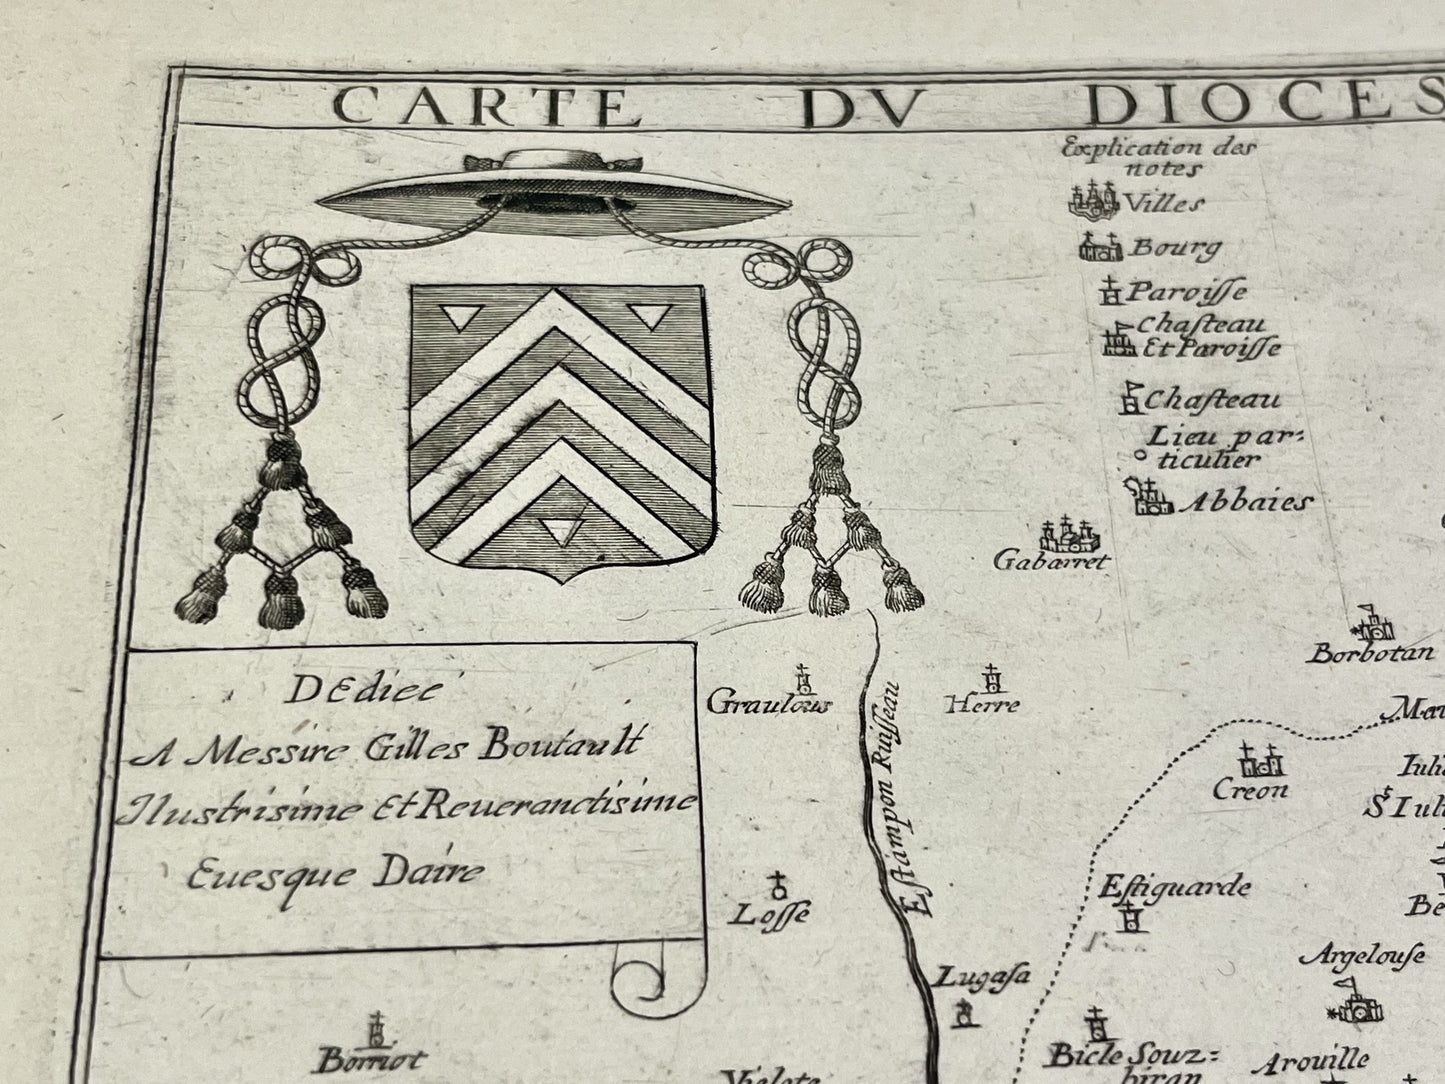 CARTE DV DIOCES
Explication des
notes
Villes
Bourg
Paroiſſe
Chaſteau
Et Paroiſſe
Chaſteau
Lieu par:
ticulier
Abbaies
DEdiee
A Messire Gilles Boutault
Ilustrisime Et Reueranctisime
Euesque Daire
Gabarret
Borbotan
Graulous
Herre
Eſtampon Ruiſſeau
Creon
S.t Iuli
Loſſe
Eſtiguarde
Argelouſe
Lugaſa
Borriot
Bicle Souz=
biran
Arouille